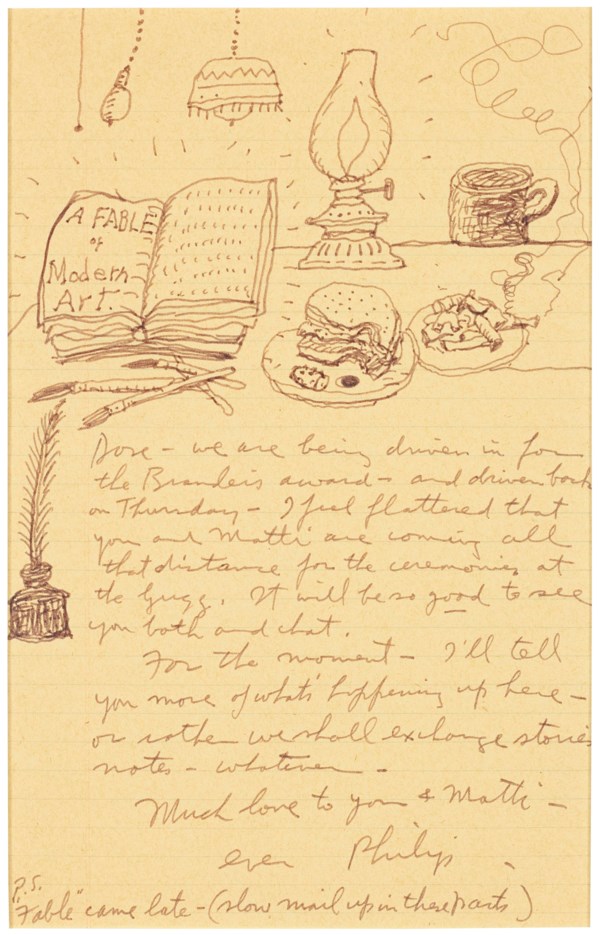 A FABLE
of
Modern
Art.
Dore - we are being driven in for
the Brandeis award - and driven back
on Thursday - I feel flattered that
you and Matti are coming all
that distance for the ceremonies at
the Gugg. It will be so good to see
you both and chat.
For the moment - I'll tell
you more of whats' happening up here -
or rather we shall exchange stories
notes - whatever -
Much love to you & Matti -
ever Philip
P.S.
"Fable" came late - (slow mail up in these parts)